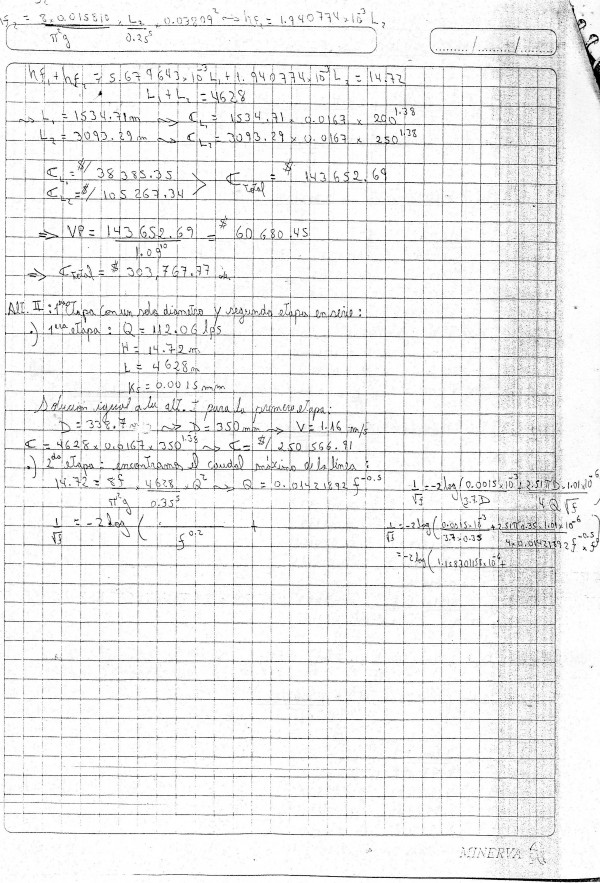 hf₂ = 8×0.015810/π²g × L₂/0.25⁵ × 0.03809² ⇝ hf₂ = 1.940774×10⁻³ L₂
........./........./.........
hf₁ + hf₂ = 5.679643×10⁻³ L₁ + 1.940774×10⁻³ L₂ = 14.72
L₁ + L₂ = 4628
⇝ L₁ = 1534.71m ⇝ C_L₁ = 1534.71 × 0.0167 × 200^1.38
L₂ = 3093.29m ⇝ C_L₂ = 3093.29 × 0.0167 × 250^1.38
C_L₁ = $/ 38385.35
C_L₂ = $/ 105267.34 > C_Total = $ 143652.69
⇒ VP = 143652.69/1.09¹⁰ = $ 60680.45
⇒ C_Total = $ 303,767.77
Alt. II: 1ʳᵃ Etapa con un solo diámetro y segunda etapa en serie:
·) 1era etapa: Q = 112.06 lps
H = 14.72 m
L = 4628m
Ks = 0.0015mm
Solución igual a la alt. I para la primera etapa:
D = 338.7 ⇝ D = 350mm ⇝ V = 1.16 m/s
C = 4628 × 0.0167 × 350^1.38 ⇝ C = $/ 250566.91
·) 2da etapa: encontramos el caudal máximo de la línea:
14.72 = 8f/π²g × 4628/0.35⁵ × Q² ⇝ Q = 0.01421892 f^-0.5
1/√f = -2log(0.0015×10⁻³/3.7D + 2.51πD×1.01×10⁻⁶/4Q√f)
1/√f = -2log( + f^0.2
1/√f = -2log(0.0015×10⁻³/3.7×0.35 + 2.51π×0.35×1.01×10⁻⁶/4×0.01421892 f^-0.5 × f
= -2log( +
MINERVA